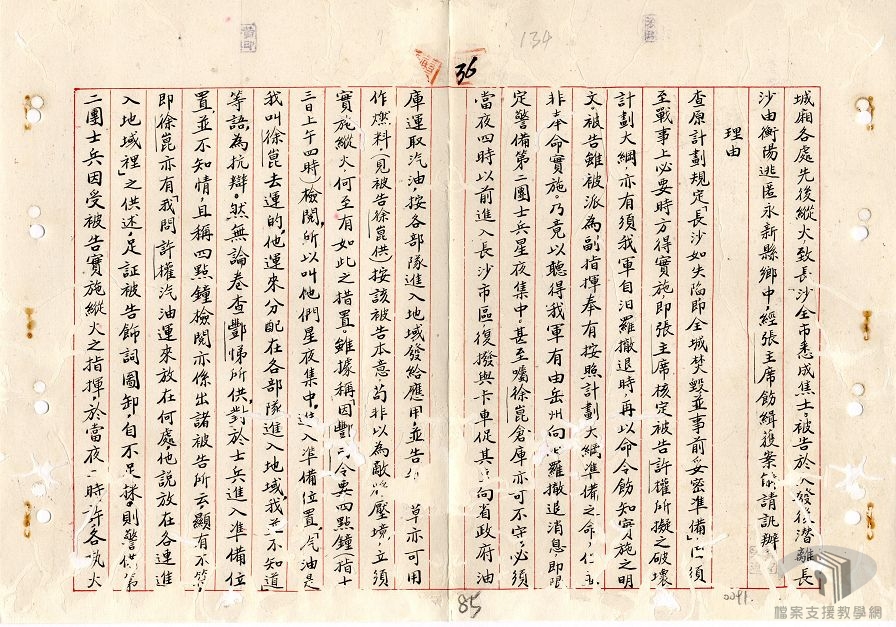 134
36
城廂各處先後縱火,致長沙全市悉成焦土。被告於入發後潛離長
沙由衡陽逃匿永新縣鄉中,經張主席飭緝獲案,請訊辦
理由
查原計劃規定「長沙如失陷即全城焚毀並事前妥密準備」,須
至戰事上必要時方得實施,即張主席核定被告許權所擬之破壞
計劃大綱,亦有須我軍自汨羅撤退時,再以命令飭知實施之明
文。被告雖被派為副指揮奉有按照計劃大綱準備之命,仁
非奉命實施。乃竟以聽得我軍有由岳州向羅撤退消息,即限
定警備第二團士兵星夜集中,甚至囑徐崑倉庫亦可不守,必須
當夜四時以前進入長沙市區,復撥與卡車促其向省政府油
庫運取汽油,按各部隊進入地域發給應用,並告 草亦可用
作燃料,(見被告徐崑供)按該被告本意,苟非以為敵壓境,立須
實施縱火,何至有如此之措置。雖據稱「因酆令要四點鐘(指十
三日上午四時)檢閱,所以叫他們星夜集中,進入準備位置,「汽油是
我叫徐崑去運的,他運來分配在各部隊進入地域,我並不知道」
等語為抗辯。然無論卷查酆悌所供,對於士兵進入準備位
置,並不知情,且稱四點鐘檢閱亦係出諸被告所云,顯有不符,
即徐崑亦有「我問許權汽油運來放在何處,他說放在各連進
入地域裡」之供述,足証被告飾詞圖卸,自不足採。則警備第
二團士兵因受被告實施縱火之指揮,於當夜二時許各執火
85
0091.
檔案支援教學網